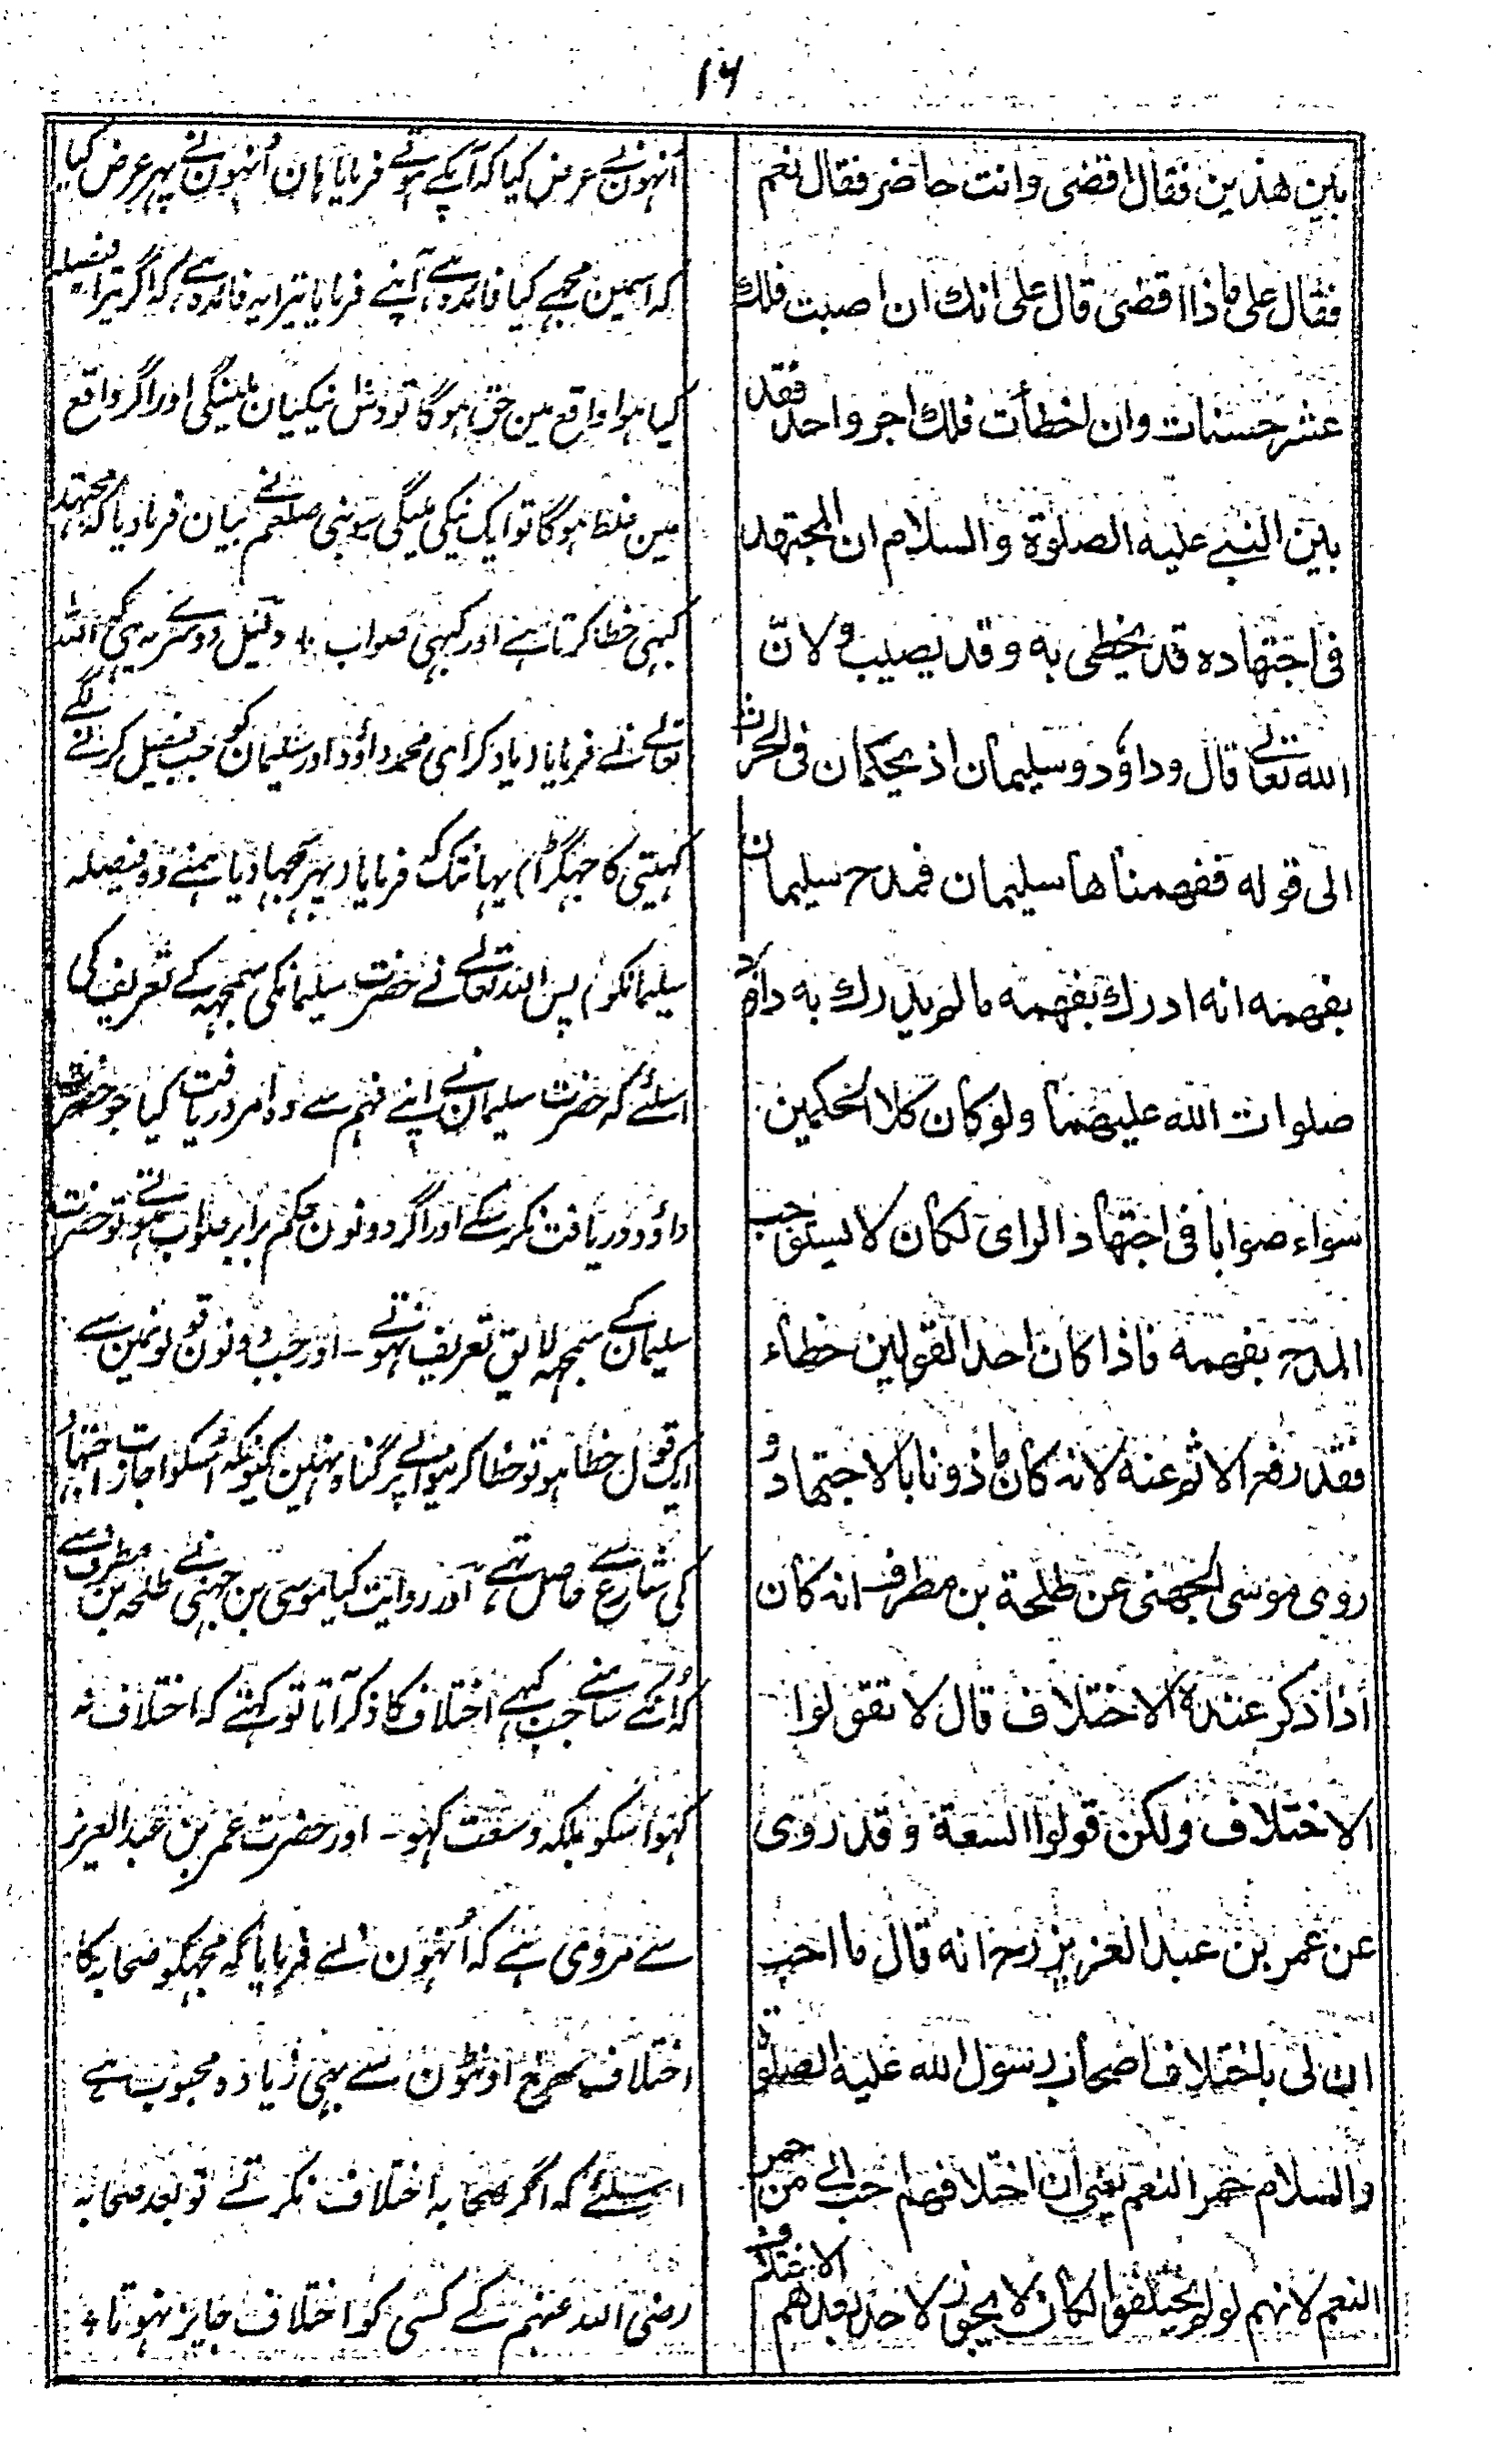 ۱۶
بين هذين فقال اقضى وانت حاضر فقال نعم
فقال على ماذا اقضى قال على انك ان اصبت فلك
عشر حسنات وان اخطأت فلك اجر واحد فقد
بين النبے عليه الصلوة والسلام ان المجتهد
فى اجتهاده قد يخطى به وقد يصيب ولانّ
الله تعالے قال وداؤد وسليمان اذ يحكمان فى الحرث
الى قوله ففهمناها سليمان فمدح سليمان
بفهمه انه ادرك بفهمه مالم يدرك به داؤد
صلوات الله عليهما ولو كان كلا الحكمين
سواء صوابا فى اجتهاد الراى لكان لا يستوجب
المدح بفهمه فاذا كان احد القولين خطاء
فقد رفع الاثم عنه لانه كان ماذونا بالاجتهاد و
روى موسى الجهنى عن طلحة بن مطرف انه كان
اذا ذكر عنده الاختلاف قال لا تقولوا
الاختلاف ولكن قولوا السعة وقد روى
عن عمر بن عبد العزيز رح انه قال ما احب
ان لى باختلاف اصحاب رسول الله عليه الصلوة
والسلام حمر النعم يعنى ان اختلافهم احب الے من حمر
النعم لانهم لو لم يختلفوا لكان لا يجوز لاحد بعدهم الاختلاف
اُنہونے عرض کیا کہ آپکے ہوتے فرمایا ہان اُنہونے پہر عرض کیا
کہ اسمین مجہے کیا فائدہ ہے، آپنے فرمایا تیرا یہ فائدہ ہے، کہ اگر تیرا فیصلہ
کیا ہوا واقع مین حق ہوگا تو دش نیکیان ملینگی اور اگر واقع
مین غلط ہوگا تو ایک نیکی ملیگی سو نبی صلعم نے بیان فرمادیا کہ مجتہد
کبہی خطا کرتا ہے اور کبہی صواب + دلیل دوسرے یہ ہی کہ اللہ
تعالے نے فرمایا (یاد کر ای محمد داؤد اور سلیمان کو جب فیصل کرنے لگے
کہیتی کا جہگڑا) یہانتک کہ فرمایا (پہر سمجہا دیا ہمنے وہ فیصلہ
سلیمانکو) پس اللہ تعالے نے حضرت سلیمانکی سمجہہ کے تعریف کی
اسلئے کہ حضرت سلیمان نے اپنے فہم سے وہ امر دریافت کیا جو حضرت
داؤد دریافت نکر سکے اور اگر دونون حکم برابر صواب ہوتے تو حضرت
سلیمان کے سمجہہ لایق تعریف نہوتے۔ اور جب دونون قولونمین سے
ایک قول خطا ہو تو خطا کرنیوالے پر گناہ نہین کیونکہ اُسکو اجازت اجتہاد
کی شارع سے حاصل تہے، اور روایت کیا موسی بن جہنی نے طلحہ بن مطرف سے
کہ اُنکے سامنے جب کبہے اختلاف کا ذکر آتا تو کہتے کہ اختلاف نہ
کہو اسکو بلکہ وسعت کہو۔ اور حضرت عمر بن عبد العزیز
سے مروی ہے کہ اُنہون نے فرمایا کہ مجہکو صحابہ کا
اختلاف سرخ اونٹون سے بہی زیادہ محبوب ہے
اسلئے کہ اگر صحابہ اختلاف نکرتے تو بعد صحابہ
رضی اللہ عنہم کے کسی کو اختلاف جایز نہوتا +